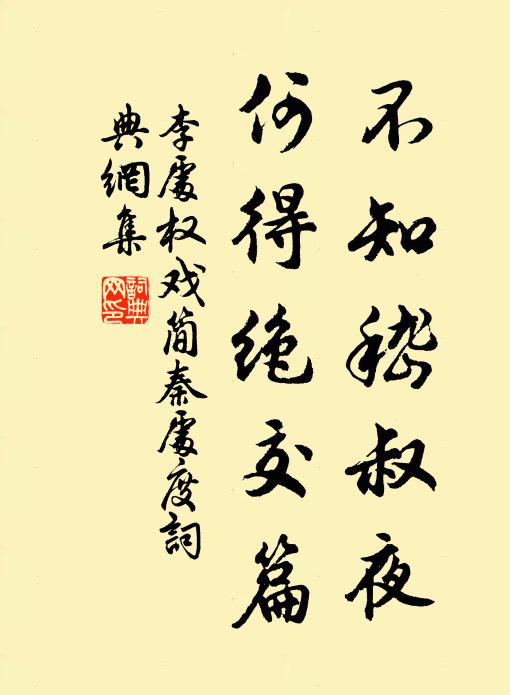 不知嵇叔夜
何得绝交篇
李處权戏简秦處度詞
典網集
詞典网印